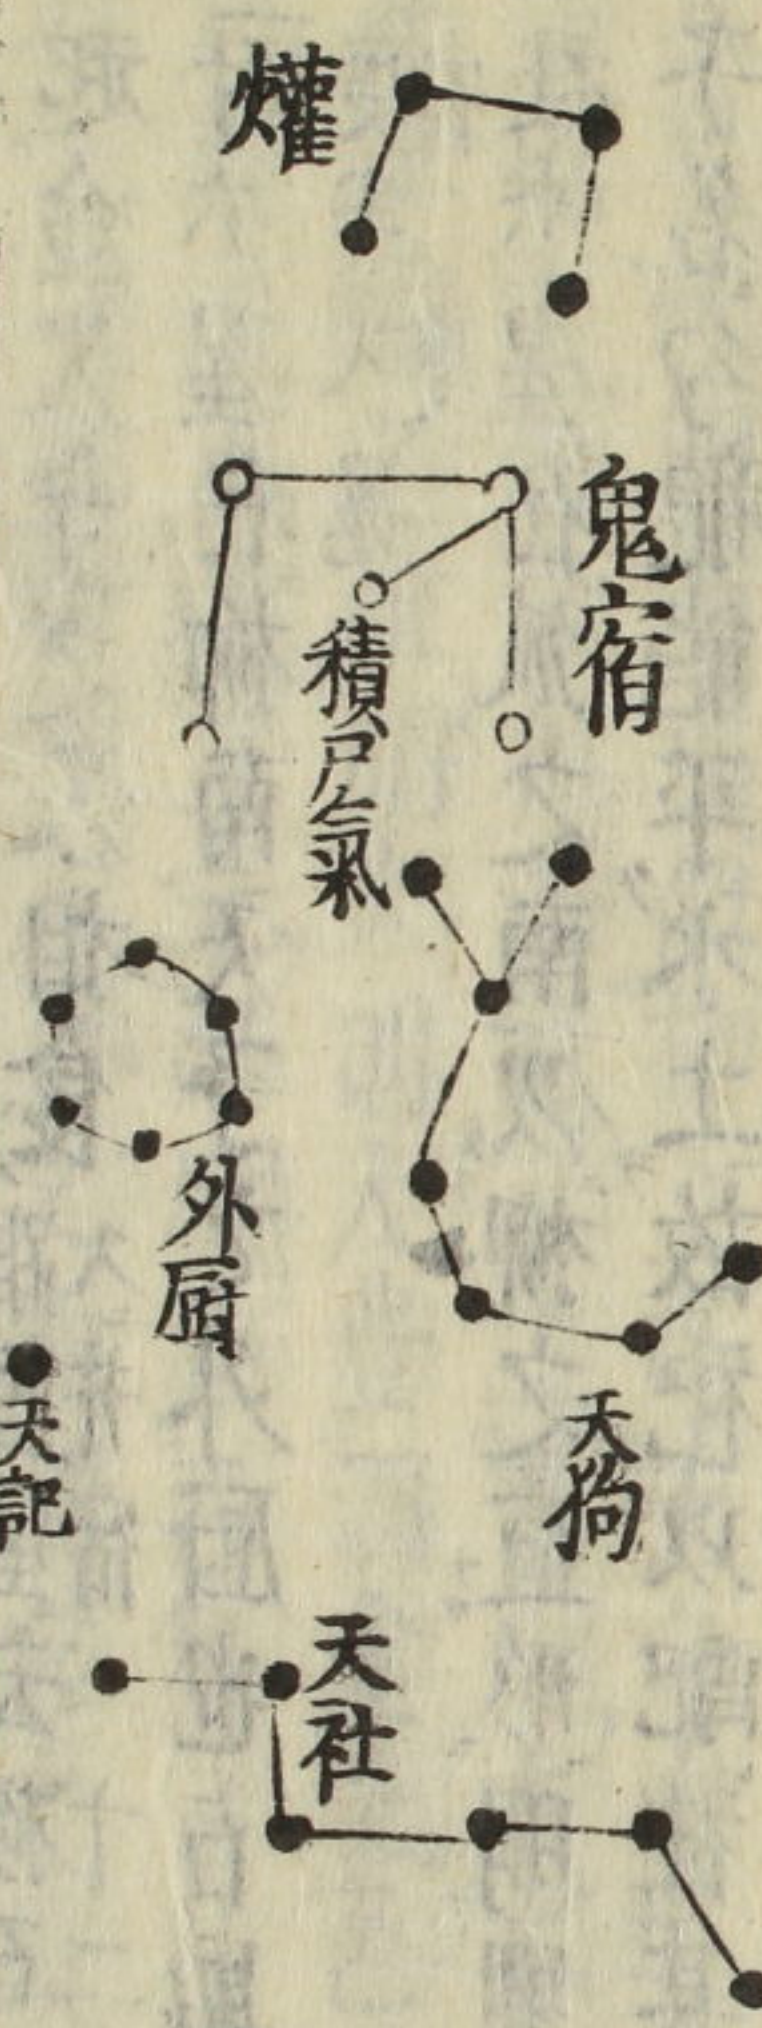 爟
鬼宿
積尸氣
外厨
天狗
天記
天社